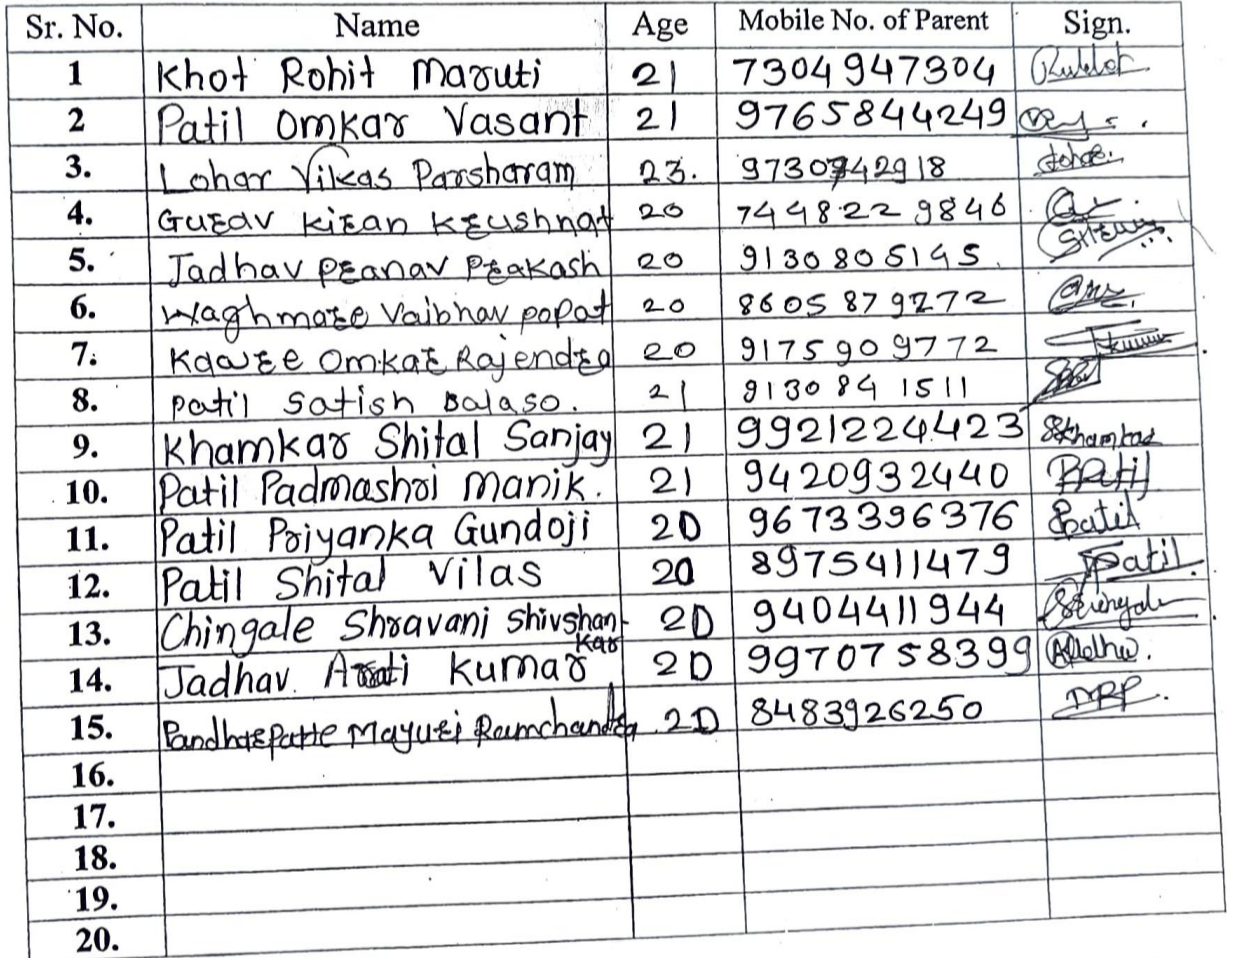 Sr. No. Name Age Mobile No. of Parent Sign.
1 Khot Rohit Maruti 21 7304947304
2 Patil Omkar Vasant 21 9765844249
3. Lohar Vikas Parsharam 23. 9730742918
4. Gurav Kiran Krushnat 20 7448229846
5. Jadhav Pranav Prakash 20 9130805145
6. Waghmare Vaibhav popat 20 8605879272
7. Omkar Rajendra 20 9175909772
8. Patil Satish Balaso. 21 9130841511
9. Khamkar Shital Sanjay 21 9921224423 SKhamkar
10. Patil Padmashri Manik. 21 9420932440 PPatil
11. Patil Priyanka Gundoji 20 9673396376 Patil
12. Patil Shital Vilas 20 8975411479 Patil
13. Chingale Shravani Shivshankar 20 9404411944
14. Jadhav. Aarati Kumar 20 9970758399
15. Mayuri Ramchandra 20 8483926250
16.
17.
18.
19.
20.